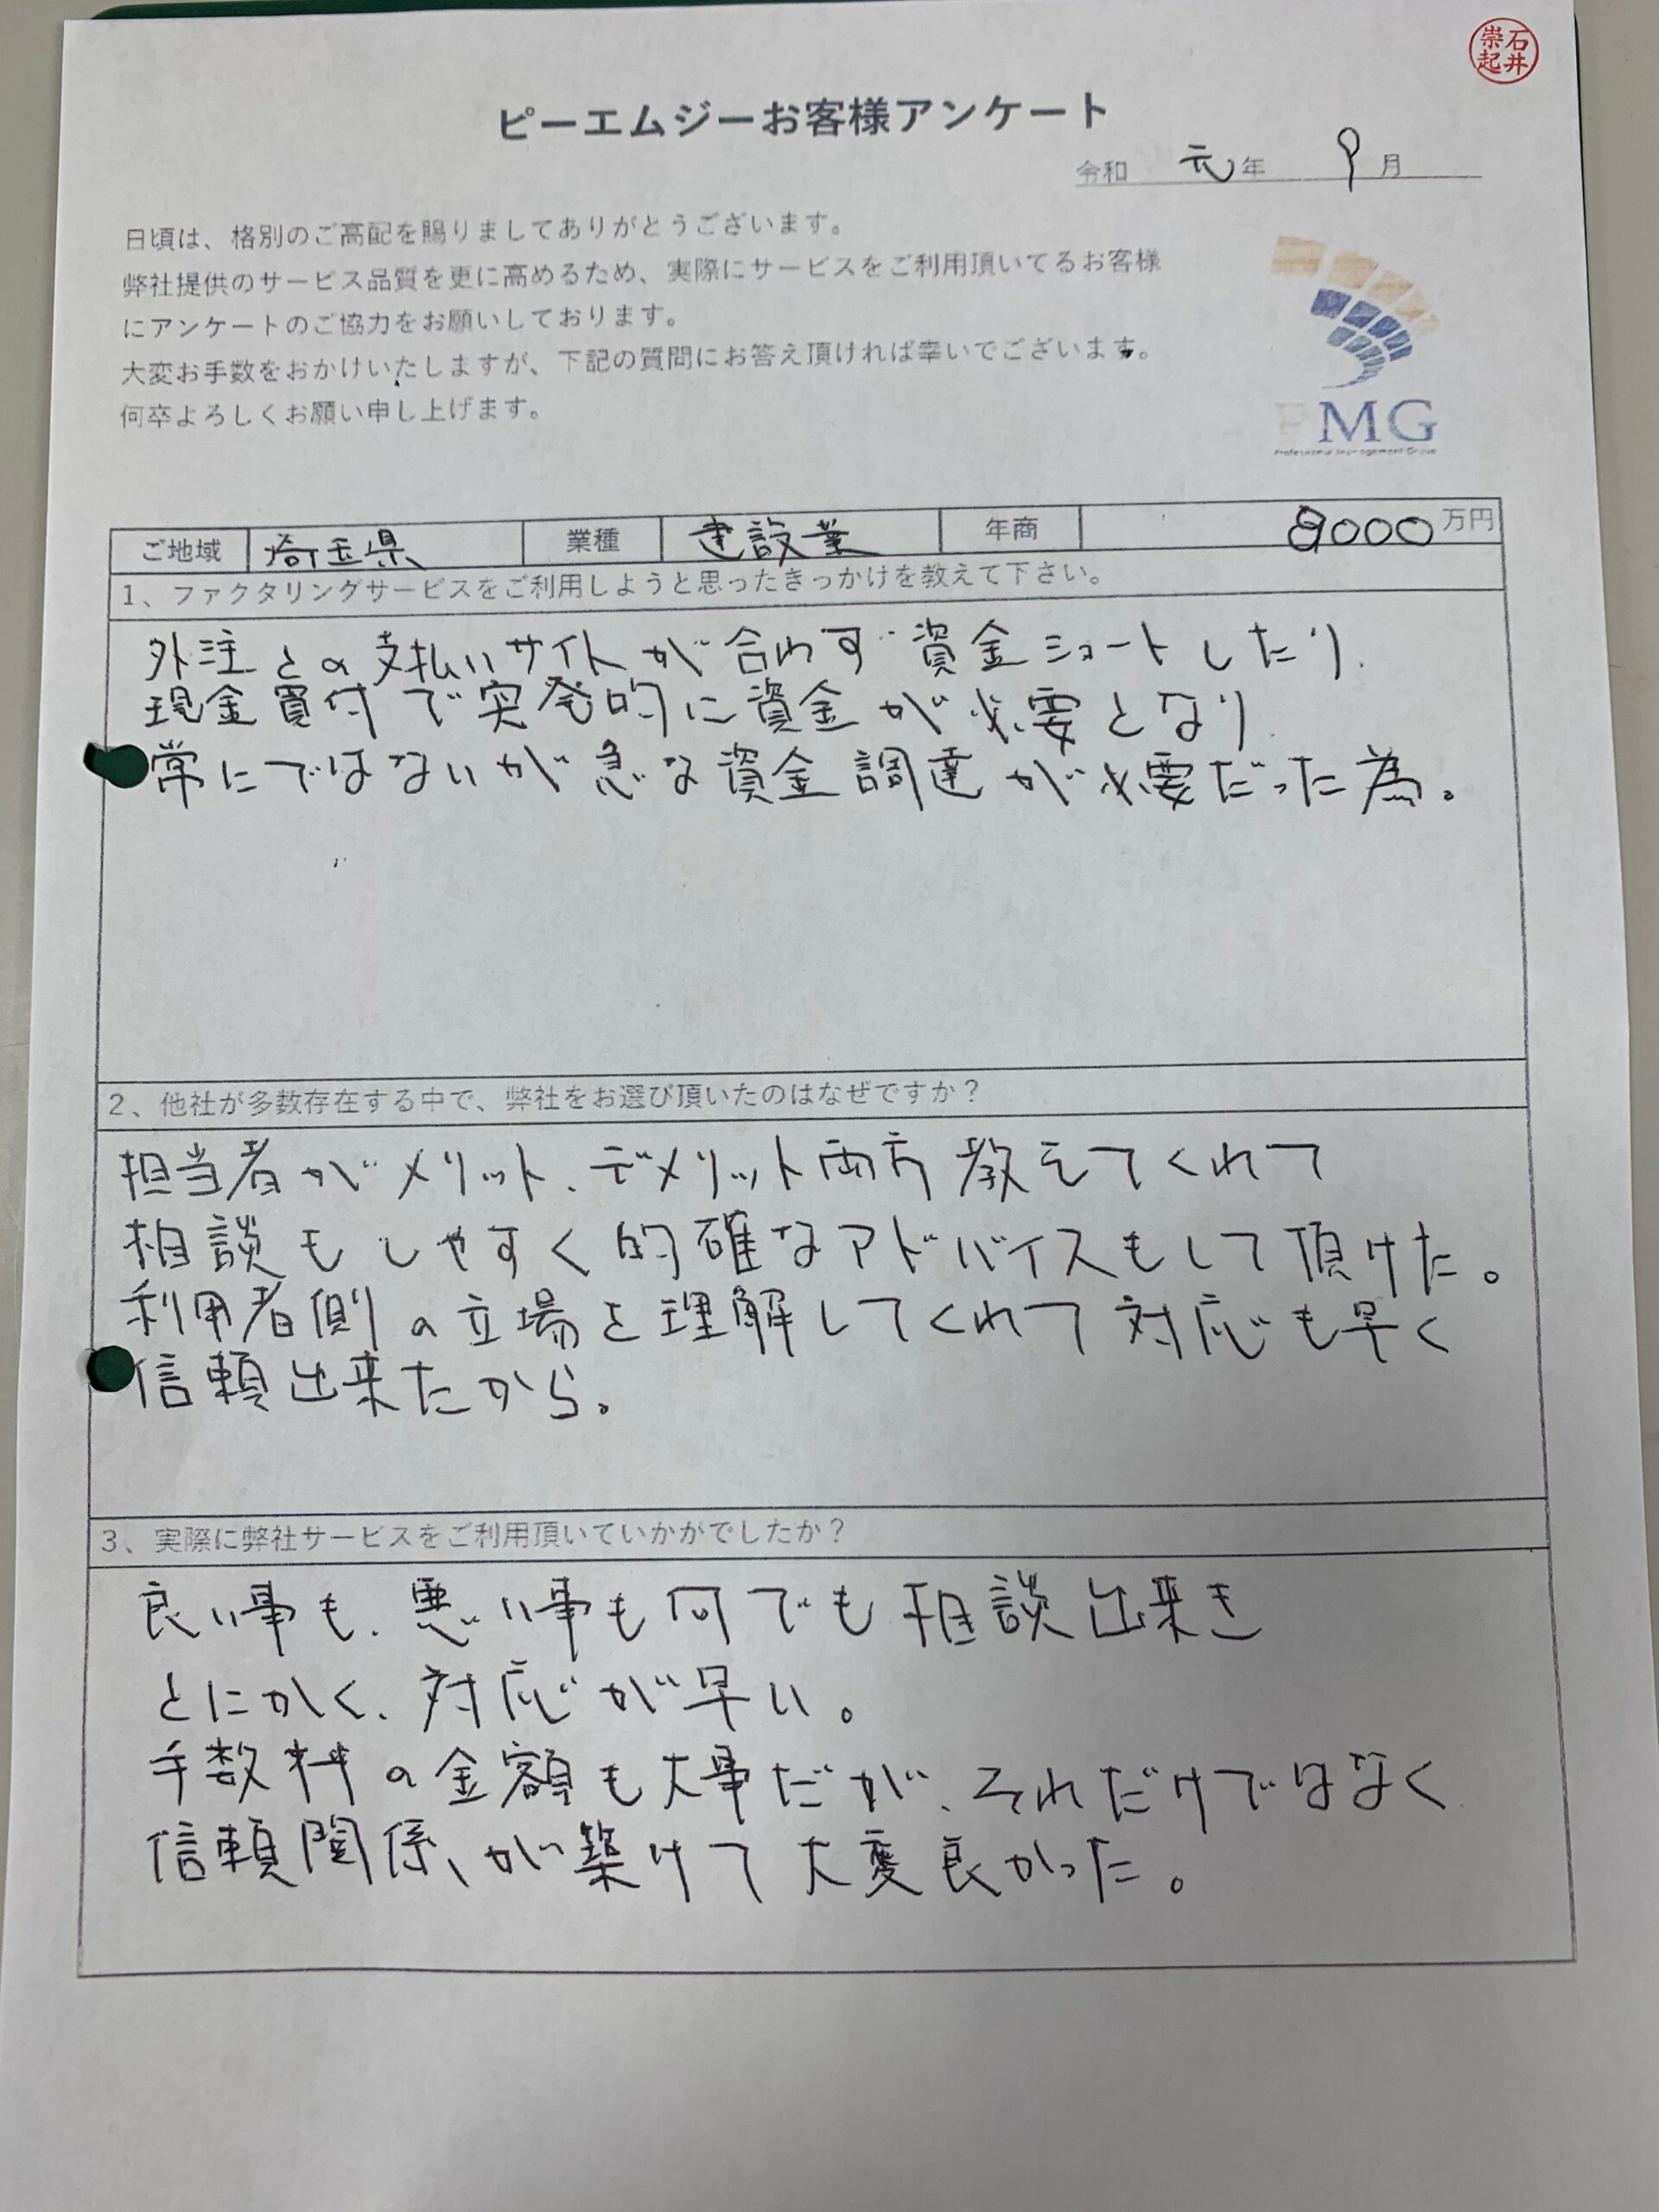 石井
崇起
ピーエムジーお客様アンケート
令和 元年 9月
日頃は、格別のご高配を賜りましてありがとうございます。
弊社提供のサービス品質を更に高めるため、実際にサービスをご利用頂いてるお客様
にアンケートのご協力をお願いしております。
大変お手数をおかけいたしますが、下記の質問にお答え頂ければ幸いでございます。
何卒よろしくお願い申し上げます。
PMG
Professional Management Group
ご地域 埼玉県 業種 建設業 年商 8000万円
1、ファクタリングサービスをご利用しようと思ったきっかけを教えて下さい。
外注との支払いサイトが合わず資金ショートしたり、
現金買付で突発的に資金が必要となり、
常にではないが急な資金調達が必要だった為。
2、他社が多数存在する中で、弊社をお選び頂いたのはなぜですか？
担当者がメリット、デメリット両方教えてくれて
相談もしやすく的確なアドバイスもして頂けた。
利用者側の立場を理解してくれて対応も早く
信頼出来たから。
3、実際に弊社サービスをご利用頂いていかがでしたか？
良い事も、悪い事も何でも相談出来き
とにかく、対応が早い。
手数料の金額も大事だが、それだけではなく
信頼関係、が築けて大変良かった。